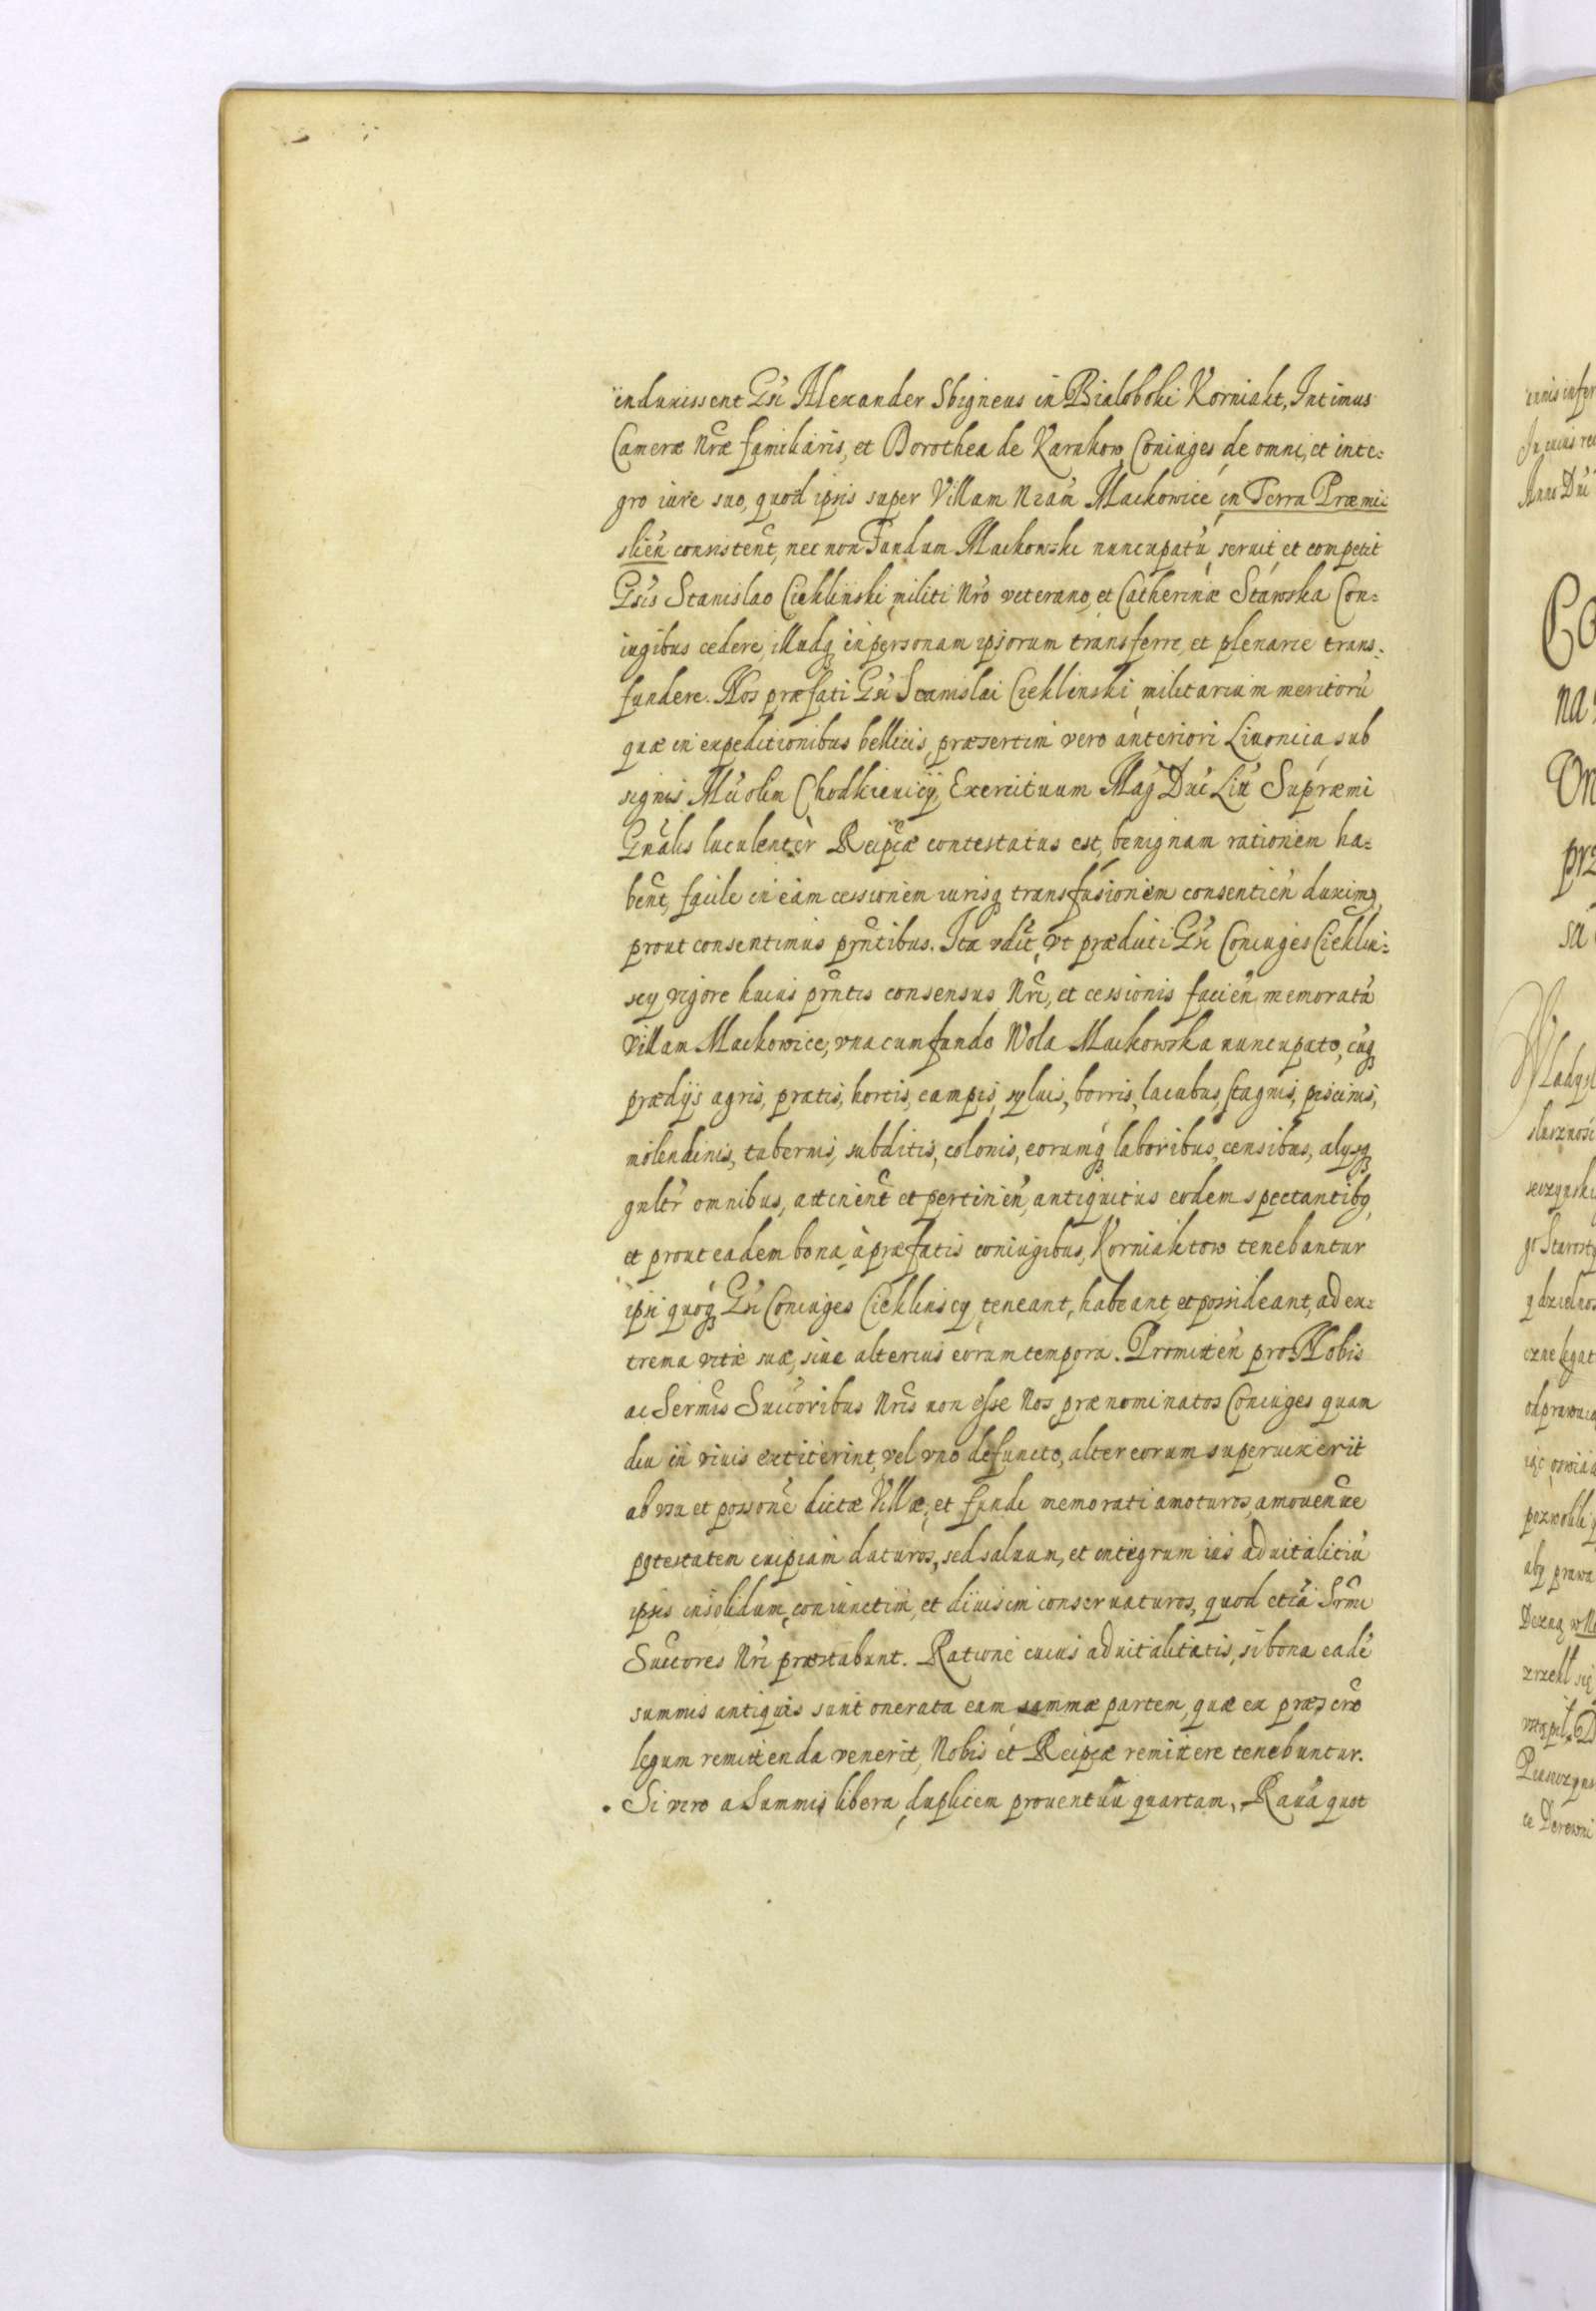 induxissent Gn̄i Alexander Sbigneus in Bialoboki Korniakt, Intimus
Cameræ Nr̄æ familiaris, et Dorothea de Karakow Coniuges de omni, et inte-
gro iure suo, quod ipsis super Villam Nrām Mackowice in Terra Præmi-
slień consistent̄, nec non Fundum Mackowski nuncupatū, seruit, et competit
Gn̄sis Stanislao Cieklinski militi Nr̄o veterano, et Catherinæ Stawska Con-
iugibus cedere, illudq in personam ipsorum transferre, et plenarie trans-
fundere. Nos præfati Gn̄i Stanislai Cieklinski militarium meritorū
quæ in expeditionibus bellicis, præsertim vero anteriori Liuonica sub
signis Mći olim Chodkieuicij, Exercituum Mag Dući Lit̄ Supræmi
Gn̄alis luculenter Reipćæ contestatus est, benignam rationem ha-
bent̄, facile in eam cessionem iurisq transfusionem consentień duximq,
prout consentimus prn̄tibus. Ita vdlt̄, vt prædicti Gn̄i Coniuges Cieklin-
scy vigore huius prn̄tis consensus Nr̄i, et cessionis facień memoratā
Villam Mackowice, vna cum fundo Wola Mackowska nuncupato, cūq
prædijs agris, pratis, hortis, campis, syluis, borris, lacubus, stagnis, piscinis,
molendinis, tabernis, subditis, colonis, eorumq laboribus, censibus, alysq
gnltr̄ omnibus, attinent̄ et pertinen̄, antiquitus eodem spectantibq,
et prout eadem bona, à præfatis coniugibus, Korniaktow tenebantur
ipsi quoq Gn̄i Coniuges Cieklinscy, teneant, habeant, et possideant, ad ex-
trema vitæ suæ, siue alterius eorum tempora. Promitteń pro Nobis
ac Sermīs Succ̄oribus Nr̄is non esse Nos prænominatos Coniuges quam
diu in viuis extiterint, vel vno defuncto, alter eorum superuixerit
ab vsu et poss̄one dictæ Villæ, et fundi memorati amoturos, amouen̄ue
potestatem cuipiam daturos, sed saluum, et integrum ius aduitalitiū
ipsis insolidum, coniunctim, et diuisim conseruaturos, quod etiā Srm̄i
Succ̄ores Nr̄i præstabunt. Ratione cuius aduitalitatis, si bona eadē
summis antiquis sunt onerata eam summæ partem, quæ ex præscr̄o
legum remittenda venerit, Nobis et Reipćæ remittere tenebuntur.
Si vero a Summis libera, duplicem prouentuū quartam, Rauā quot